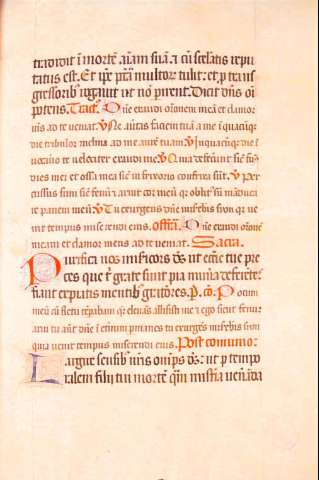 tradidit ī mortē aīam suā ⁊ cū sc̄elatis repu
tatus est. Et ip̄e pc̄ā multoꝝ tulit: et ꝓ trans
gressoribꝰ rogauit vt nō ꝑirent. Dicit dn̄s oī
potens. Tract. Dn̄e exaudi or̄onem meā et clamor
meus ad te ueniat. ℣ Ne auertas faciem tuā a me ī quacūqꝫ
die tribulor inclina ad me aurē tuam. ℣ In quacūqꝫ die ī
uocauero te uelociter exaudi me ℣ Quia defecerunt sic̄ fu
dies mei et ossa mea sic̄ in frixorio confrixa sūt. ℣ Per
cussus sum sic̄ fenū ⁊ aruit cor meū qꝫ oblitꝰ sū māduca
re panem meū ℣ Tu exurgens dn̄e misebis sion qꝫ ue
nit tempus miserendi eius. Offīa. Dn̄e exaudi or̄onē
meam et clamor meus ad te ueniat. Sacra.
Purifica nos misericors ds̄ ut eccīe tue pre
ces que t̄ grate sunt pia mun̄a deferētes
fiant expiatis mentibꝰ gratiores. P. Cō. Potum
meū cū fletu tēꝑabam qꝫ eleuās allisisti me ⁊ ego sicut fenum
arui tu aūt dn̄e ī et̄num ꝑmanes tu exurgēs misebis sion
quia uenit tempus miserendi eius. Post comunio:
Largire sensibꝰ nr̄is om̄ps ds̄: ut ꝑ tempo
ralem filii tui mortē quā mist̄ia uen̄āda